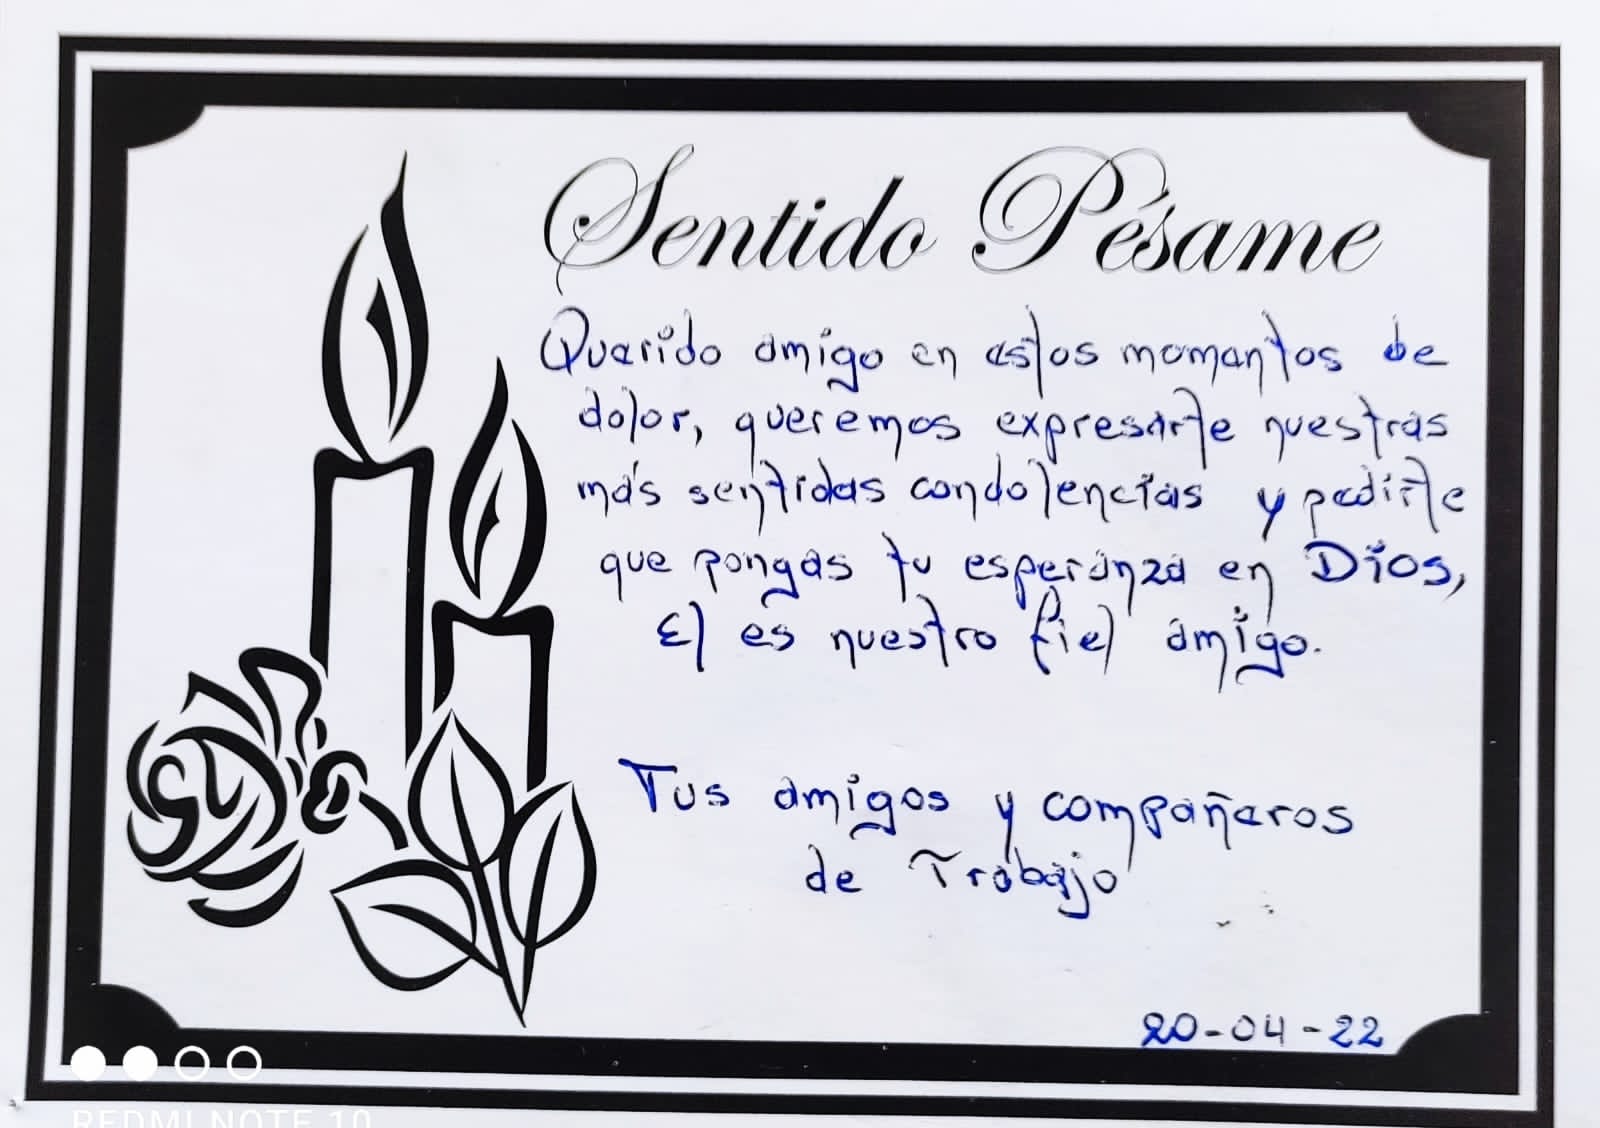 Sentido Pésame
Querido amigo en estos momentos de
dolor, queremos expresarte nuestras
más sentidas condolencias y pedirte
que pongas tu esperanza en Dios,
El es nuestro fiel amigo.
Tus amigos y compañeros
de Trabajo
20-04-22
REDMI NOTE 10